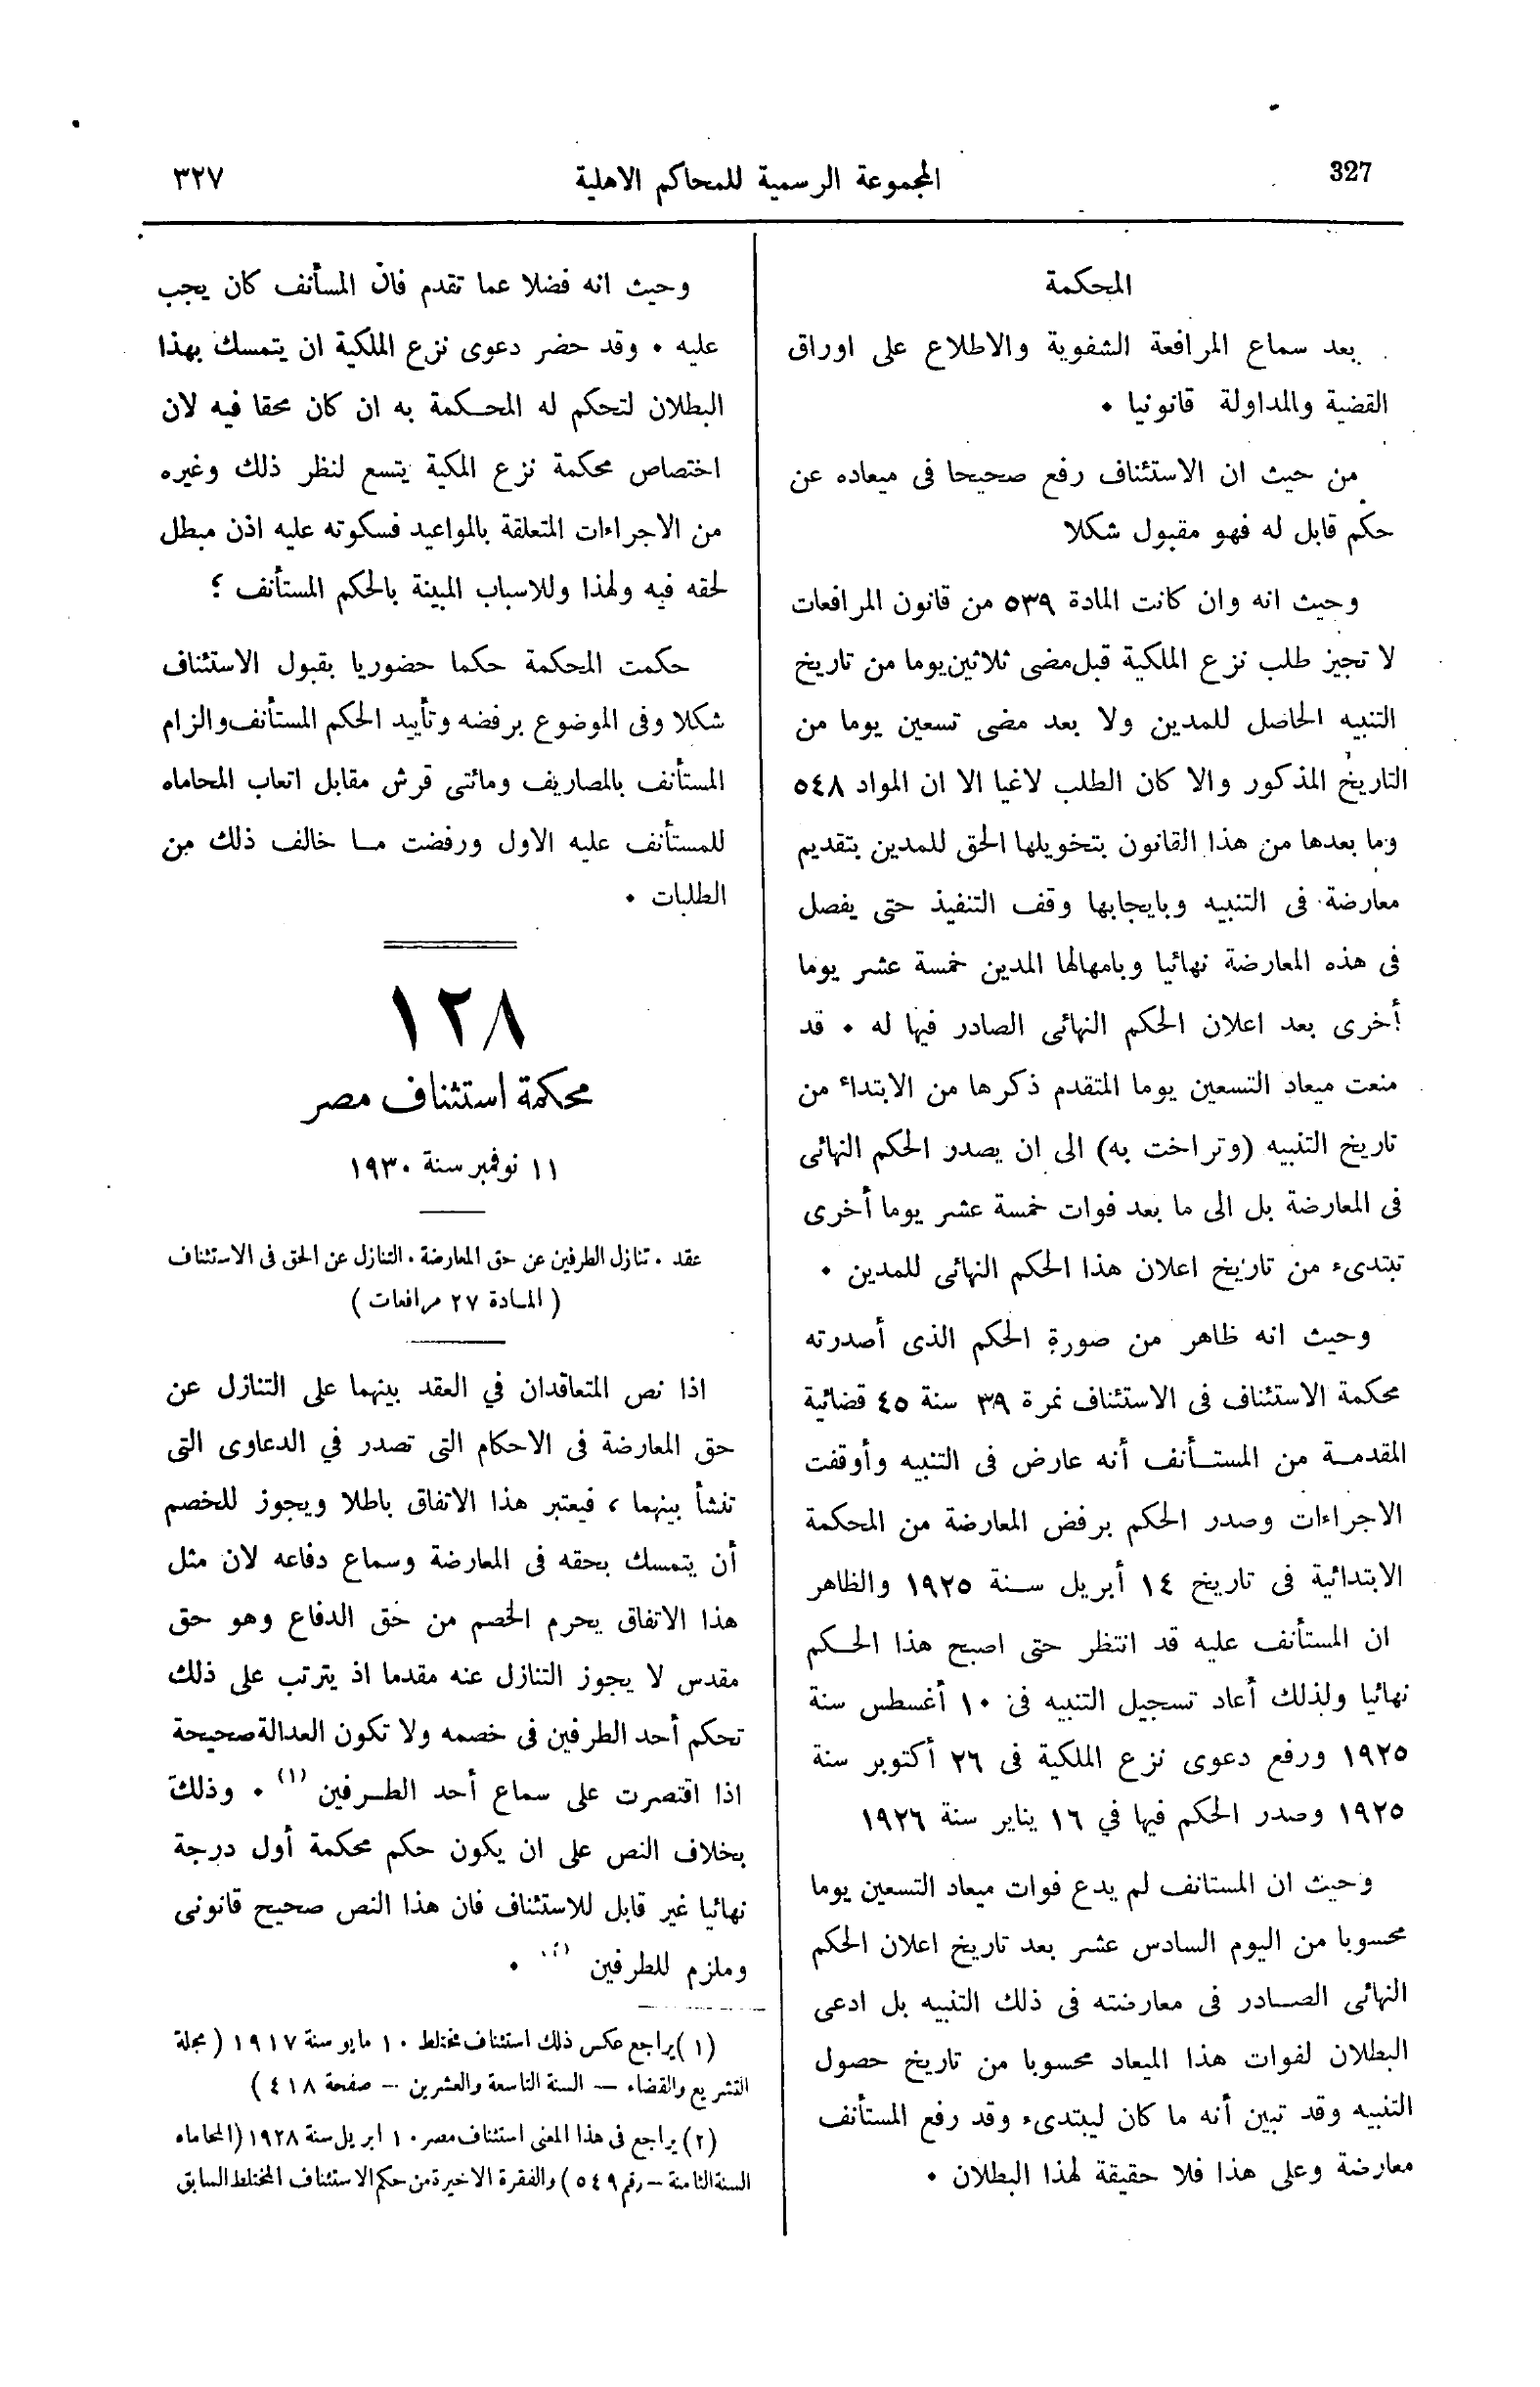 327
المجموعة الرسمية للمحاكم الاهلية
٣٢٧
المحكمة
بعد سماع المرافعة الشفوية والاطلاع على اوراق
القضية والمداولة قانونيا ٠
من حيث ان الاستئناف رفع صحيحا فى ميعاده عن
حكم قابل له فهو مقبول شكلا
وحيث انه وان كانت المادة ٥٣٩ من قانون المرافعات
لا تجيز طلب نزع الملكية قبل مضى ثلاثين يوما من تاريخ
التنبيه الحاصل للمدين ولا بعد مضى تسعين يوما من
التاريخ المذكور والا كان الطلب لاغيا الا ان المواد ٥٤٨
وما بعدها من هذا القانون بتخويلها الحق للمدين بتقديم
معارضة فى التنبيه وبايجابها وقف التنفيذ حتى يفصل
فى هذه المعارضة نهائيا وبامهالها المدين خمسة عشر يوما
أخرى بعد اعلان الحكم النهائى الصادر فيها له ٠ قد
منعت ميعاد التسعين يوما المتقدم ذكرها من الابتداء من
تاريخ التنبيه (وتراخت به) الى ان يصدر الحكم النهائى
فى المعارضة بل الى ما بعد فوات خمسة عشر يوما أخرى
تبتدىء من تاريخ اعلان هذا الحكم النهائى للمدين ٠
وحيث انه ظاهر من صورة الحكم الذى أصدرته
محكمة الاستئناف فى الاستئناف نمرة ٣٩ سنة ٤٥ قضائية
المقدمة من المستأنف أنه عارض فى التنبيه وأوقفت
الاجراءات وصدر الحكم برفض المعارضة من المحكمة
الابتدائية فى تاريخ ١٤ أبريل سنة ١٩٢٥ والظاهر
ان المستأنف عليه قد انتظر حتى اصبح هذا الحكم
نهائيا ولذلك أعاد تسجيل التنبيه فى ١٠ أغسطس سنة
١٩٢٥ ورفع دعوى نزع الملكية فى ٢٦ أكتوبر سنة
١٩٢٥ وصدر الحكم فيها في ١٦ يناير سنة ١٩٢٦
وحيث ان المستانف لم يدع فوات ميعاد التسعين يوما
محسوبا من اليوم السادس عشر بعد تاريخ اعلان الحكم
النهائى الصادر فى معارضته فى ذلك التنبيه بل ادعى
البطلان لفوات هذا الميعاد محسوبا من تاريخ حصول
التنبيه وقد تبين أنه ما كان ليبتدىء وقد رفع المستأنف
معارضة وعلى هذا فلا حقيقة لهذا البطلان ٠
وحيث انه فضلا عما تقدم فان المسأنف كان يجب
عليه ٠ وقد حضر دعوى نزع الملكية ان يتمسك بهذا
البطلان لتحكم له المحكمة به ان كان محقا فيه لان
اختصاص محكمة نزع المكية يتسع لنظر ذلك وغيره
من الاجراءات المتعلقة بالمواعيد فسكوته عليه اذن مبطل
لحقه فيه ولهذا وللاسباب المبينة بالحكم المستأنف ؛
حكمت المحكمة حكما حضوريا بقبول الاستئناف
شكلا وفى الموضوع برفضه وتأييد الحكم المستأنف والزام
المستأنف بالمصاريف ومائتى قرش مقابل اتعاب المحاماه
للمستأنف عليه الاول ورفضت ما خالف ذلك من
الطلبات ٠
١٢٨
محكمة استئناف مصر
١١ نوفمبر سنة ١٩٣٠
عقد ٠ تنازل الطرفين عن حق المعارضة ٠ التنازل عن الحق فى الاستئناف
( المادة ٢٧ مرافعات )
اذا نص المتعاقدان في العقد بينهما على التنازل عن
حق المعارضة فى الاحكام التى تصدر في الدعاوى التى
تنشأ بينهما ، فيعتبر هذا الاتفاق باطلا ويجوز للخصم
أن يتمسك بحقه فى المعارضة وسماع دفاعه لان مثل
هذا الاتفاق يحرم الخصم من حق الدفاع وهو حق
مقدس لا يجوز التنازل عنه مقدما اذ يترتب على ذلك
تحكم أحد الطرفين فى خصمه ولا تكون العدالة صحيحة
اذا اقتصرت على سماع أحد الطرفين (١) ٠ وذلك
بخلاف النص على ان يكون حكم محكمة أول درجة
نهائيا غير قابل للاستئناف فان هذا النص صحيح قانونى
وملزم للطرفين (٢) ٠
(١) يراجع عكس ذلك استئناف مختلط ١٠ مايو سنة ١٩١٧ ( مجلة
التشريع والقضاء — السنة التاسعة والعشرين — صفحة ٤١٨ )
(٢) يراجع فى هذا المعنى استئناف مصر ١٠ ابريل سنة ١٩٢٨ (المحاماه
السنة الثامنة — رقم ٥٤٩ ) والفقرة الاخيرة من حكم الاستئناف المختلط السابق